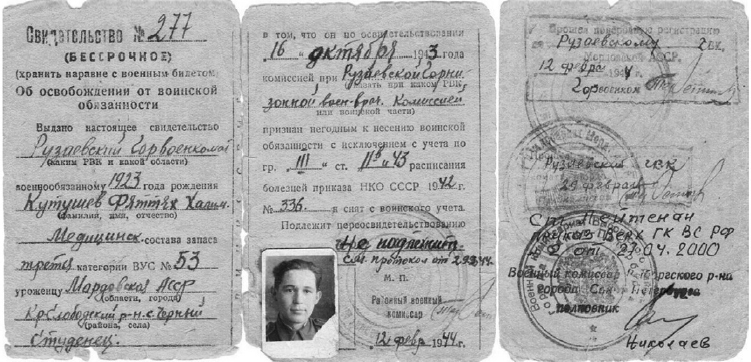 Свидетельство № 277
(БЕССРОЧНОЕ)
(хранить наравне с военным билетом)
Об освобождении от воинской
обязанности
Выдано настоящее свидетельство
Рузаевский Горвоенкомат
(каким РВК и какой области)
военнообязанному 1923 года рождения
Кутушев Фяттях Халим.
(фамилия, имя, отчество)
Медицинск. состава запаса
третья категории ВУС № 53
уроженцу Мордовская АССР
(области, города)
Кр-Слободский р-н с. Черный
(района, села)
Студенец.
в том, что он по освидетельствовании
16 " октября 1943 года
комиссией при Рузаевской Горни
(указать при каком РВК,
зонной воен-врач. Комиссией
или воинской части)
признан негодным к несению воинской
обязанности с исключением с учета по
гр. III ст. 43 расписания
болезней приказа НКО СССР 1942 г.
№ 336. и снят с воинского учета.
Подлежит переосвидетельствованию
Не подлежит.
См. протокол от
М. П.
Районный военный
комиссар
12 февр. 1944 г.
Прошел повторную регистрацию
Рузаевскому РВК,
Мордовской АССР.
12 февра
Горвоенком
Рузаевский ГВК
29 февраля
Ст. Лейтенант
приказ Верх ГК ВС РФ
от 27.04.2000
Военный комиссар р-на
города Санкт-Петербурга
полковник
Николаев